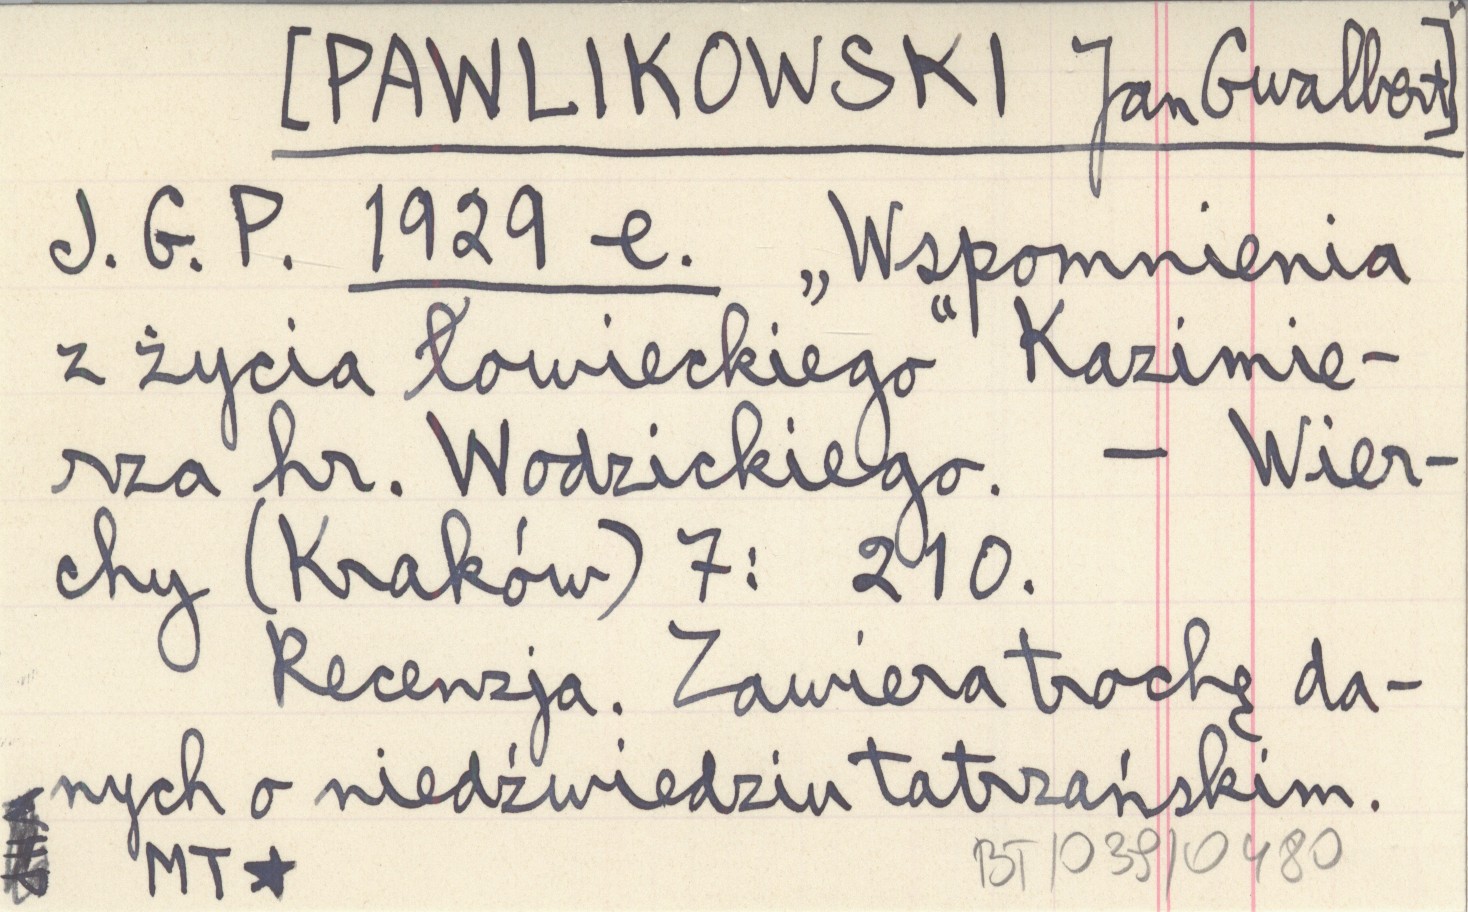 [PAWLIKOWSKI Jan Gwalbert]
J. G. P. 1929 e. „Wspomnienia
z życia łowieckiego“ Kazimie-
rza hr. Wodzickiego. — Wier-
chy (Kraków) 7: 210.
Recenzja. Zawiera trochę da-
nych o niedźwiedziu tatrzańskim.
MT ★
BT/039/0480